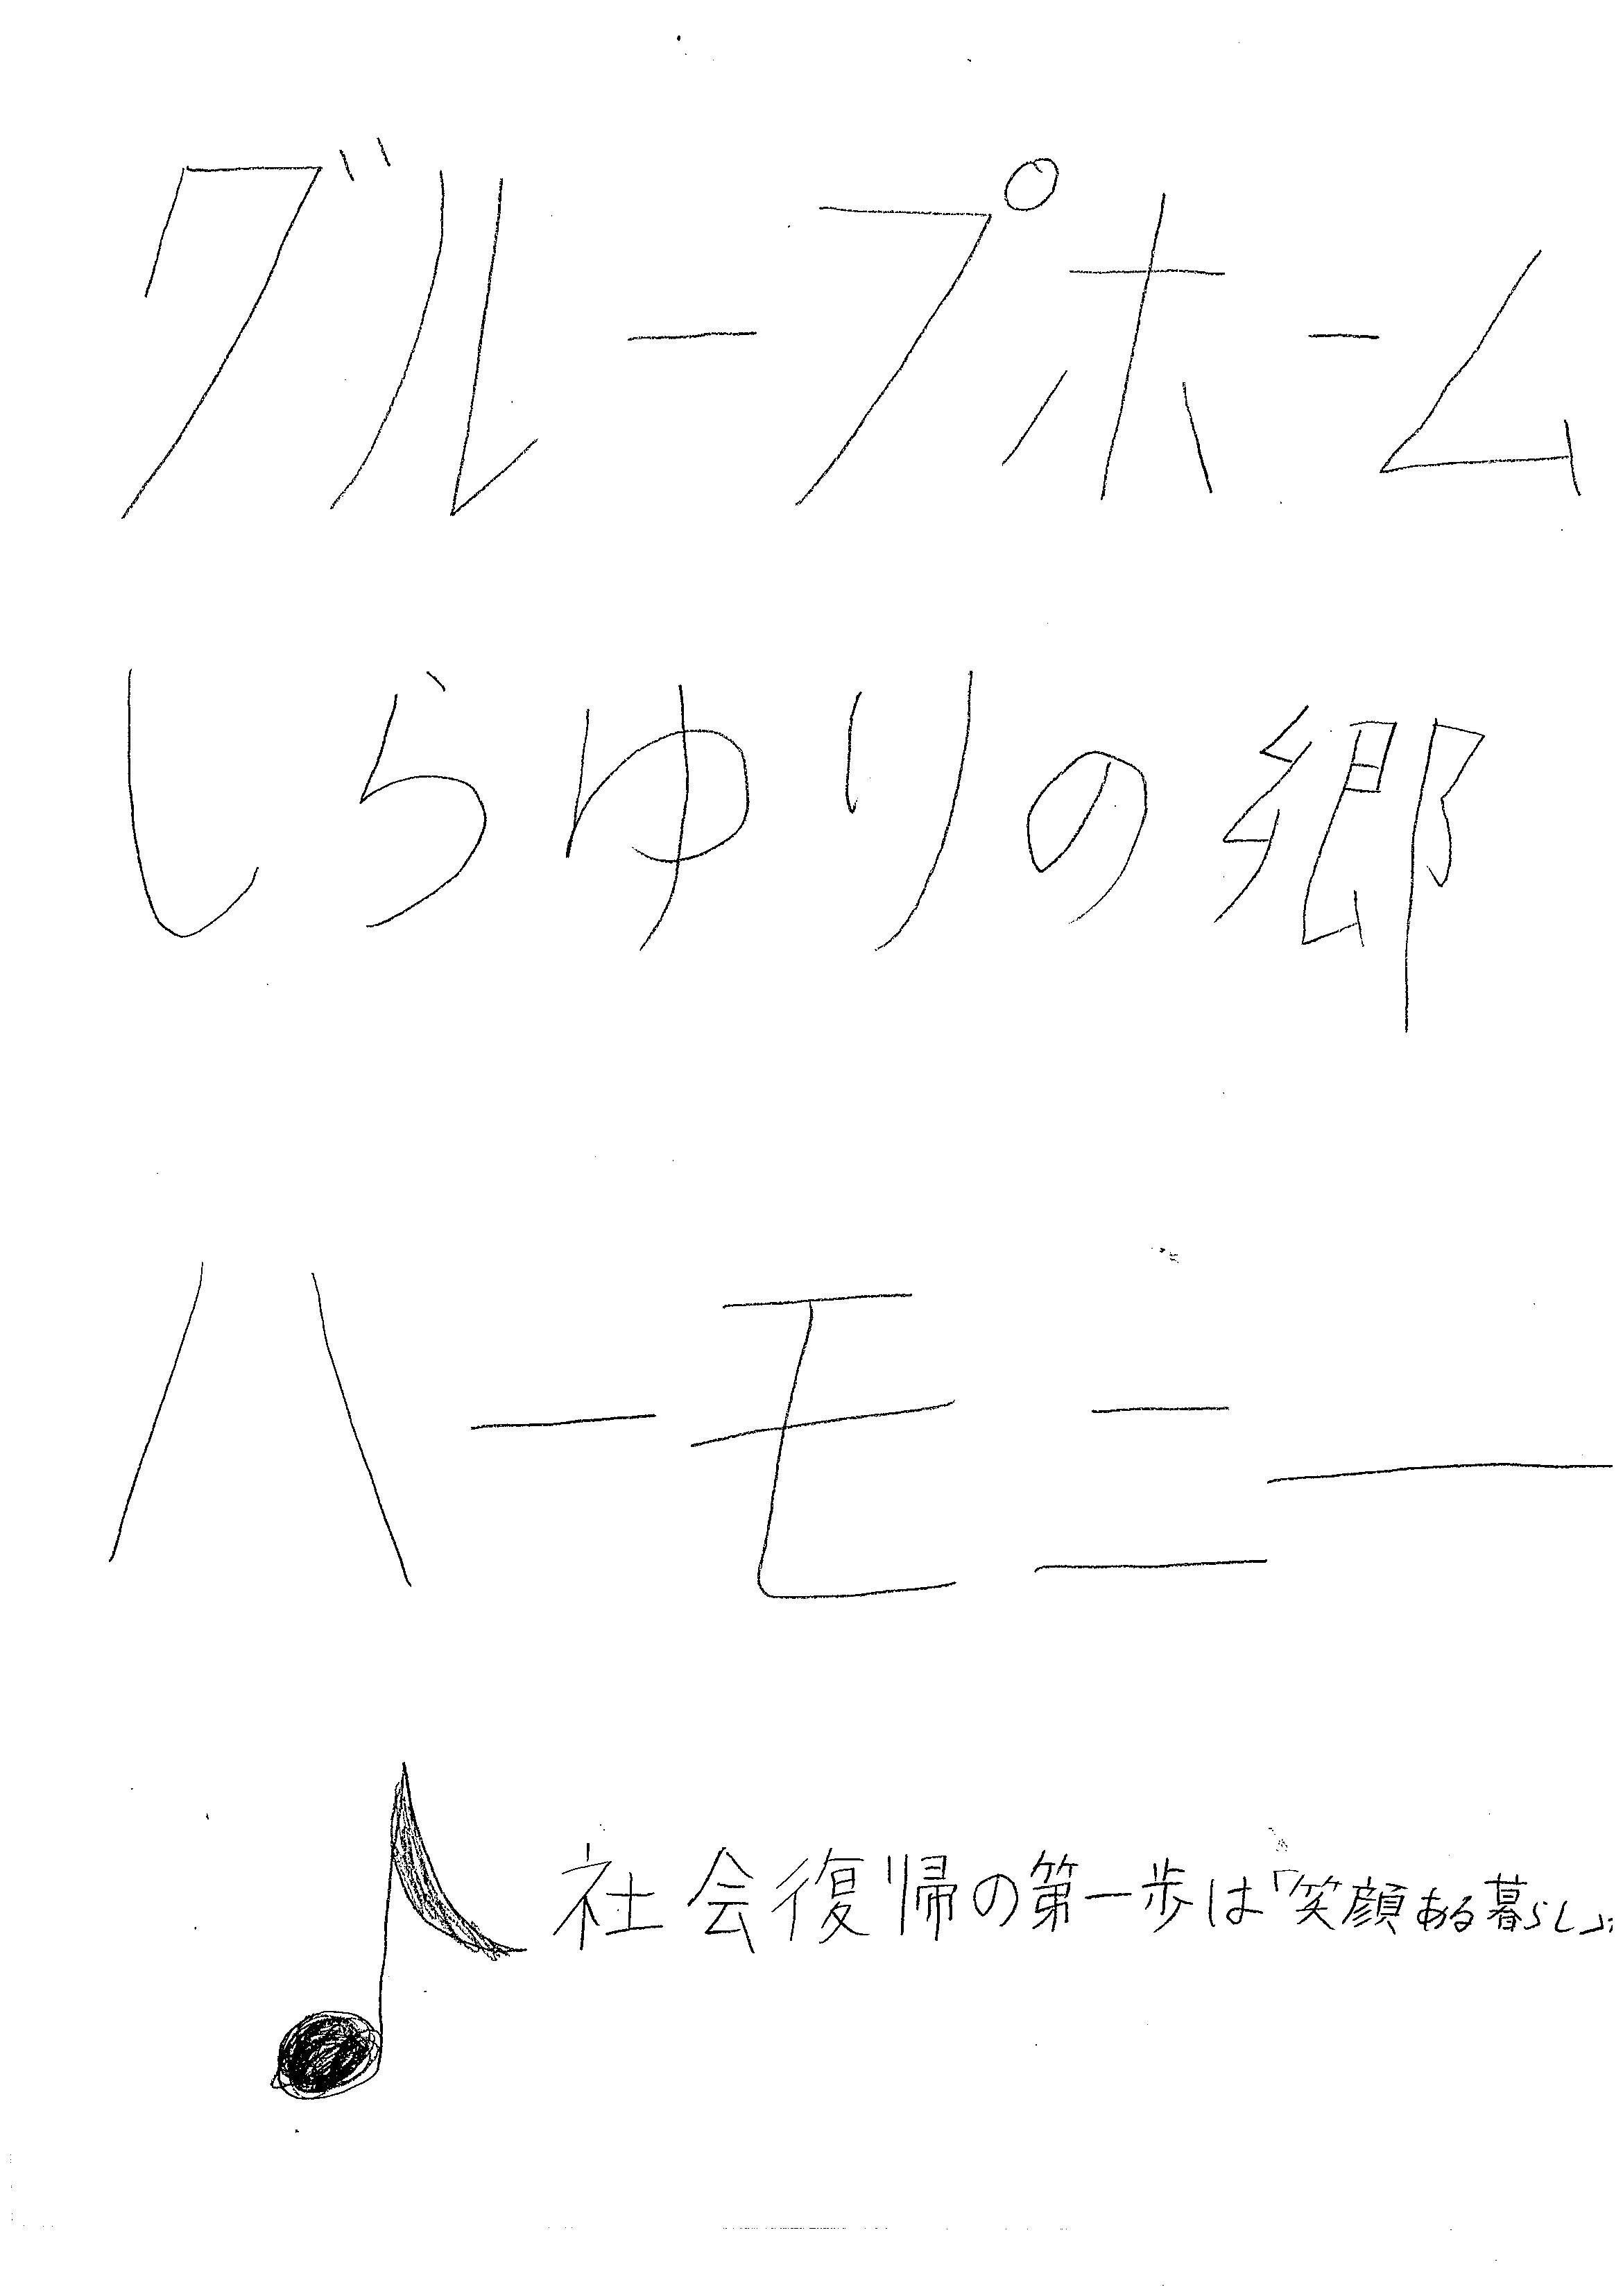 グループホーム
しらゆりの郷
ハーモニー
社会復帰の第一歩は「笑顔ある暮らし」